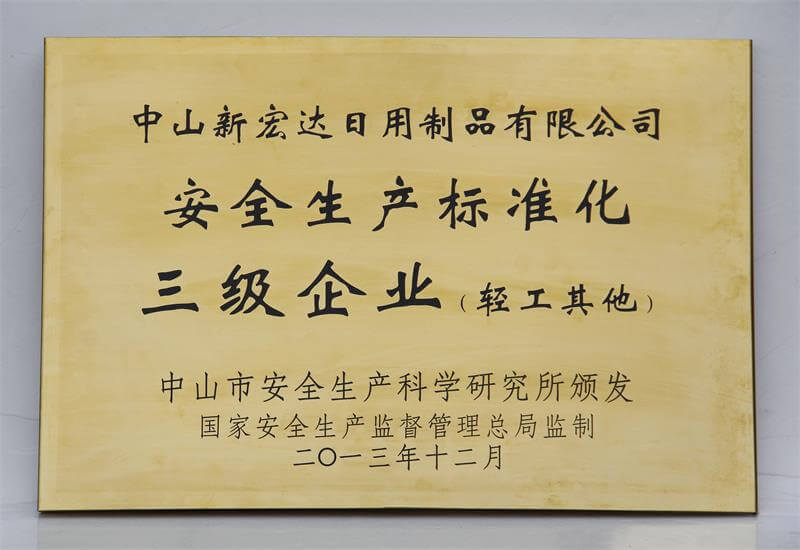 中山新宏达日用制品有限公司
安全生产标准化
三级企业（轻工其他）
中山市安全生产科学研究所颁发
国家安全生产监督管理总局监制
二〇一三年十二月